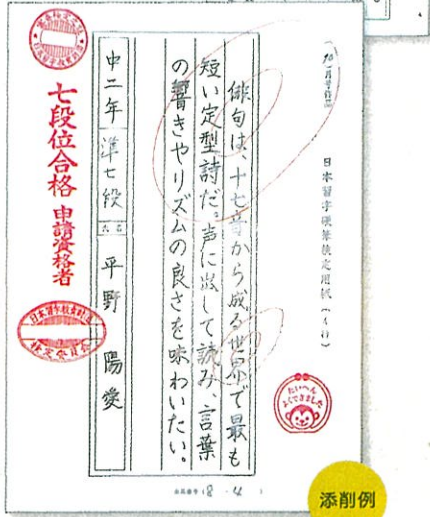 (10)月号作品
日本習字硬筆検定用紙(4行)
俳句は、十七音から成る世界で最も
短い定型詩だ。声に出して読み、言葉
の響きやリズムの良さを味わいたい。
中二年 準七段 氏名 平野 陽愛
七段位合格 申請資格者
たいへん
よくできました
添削例